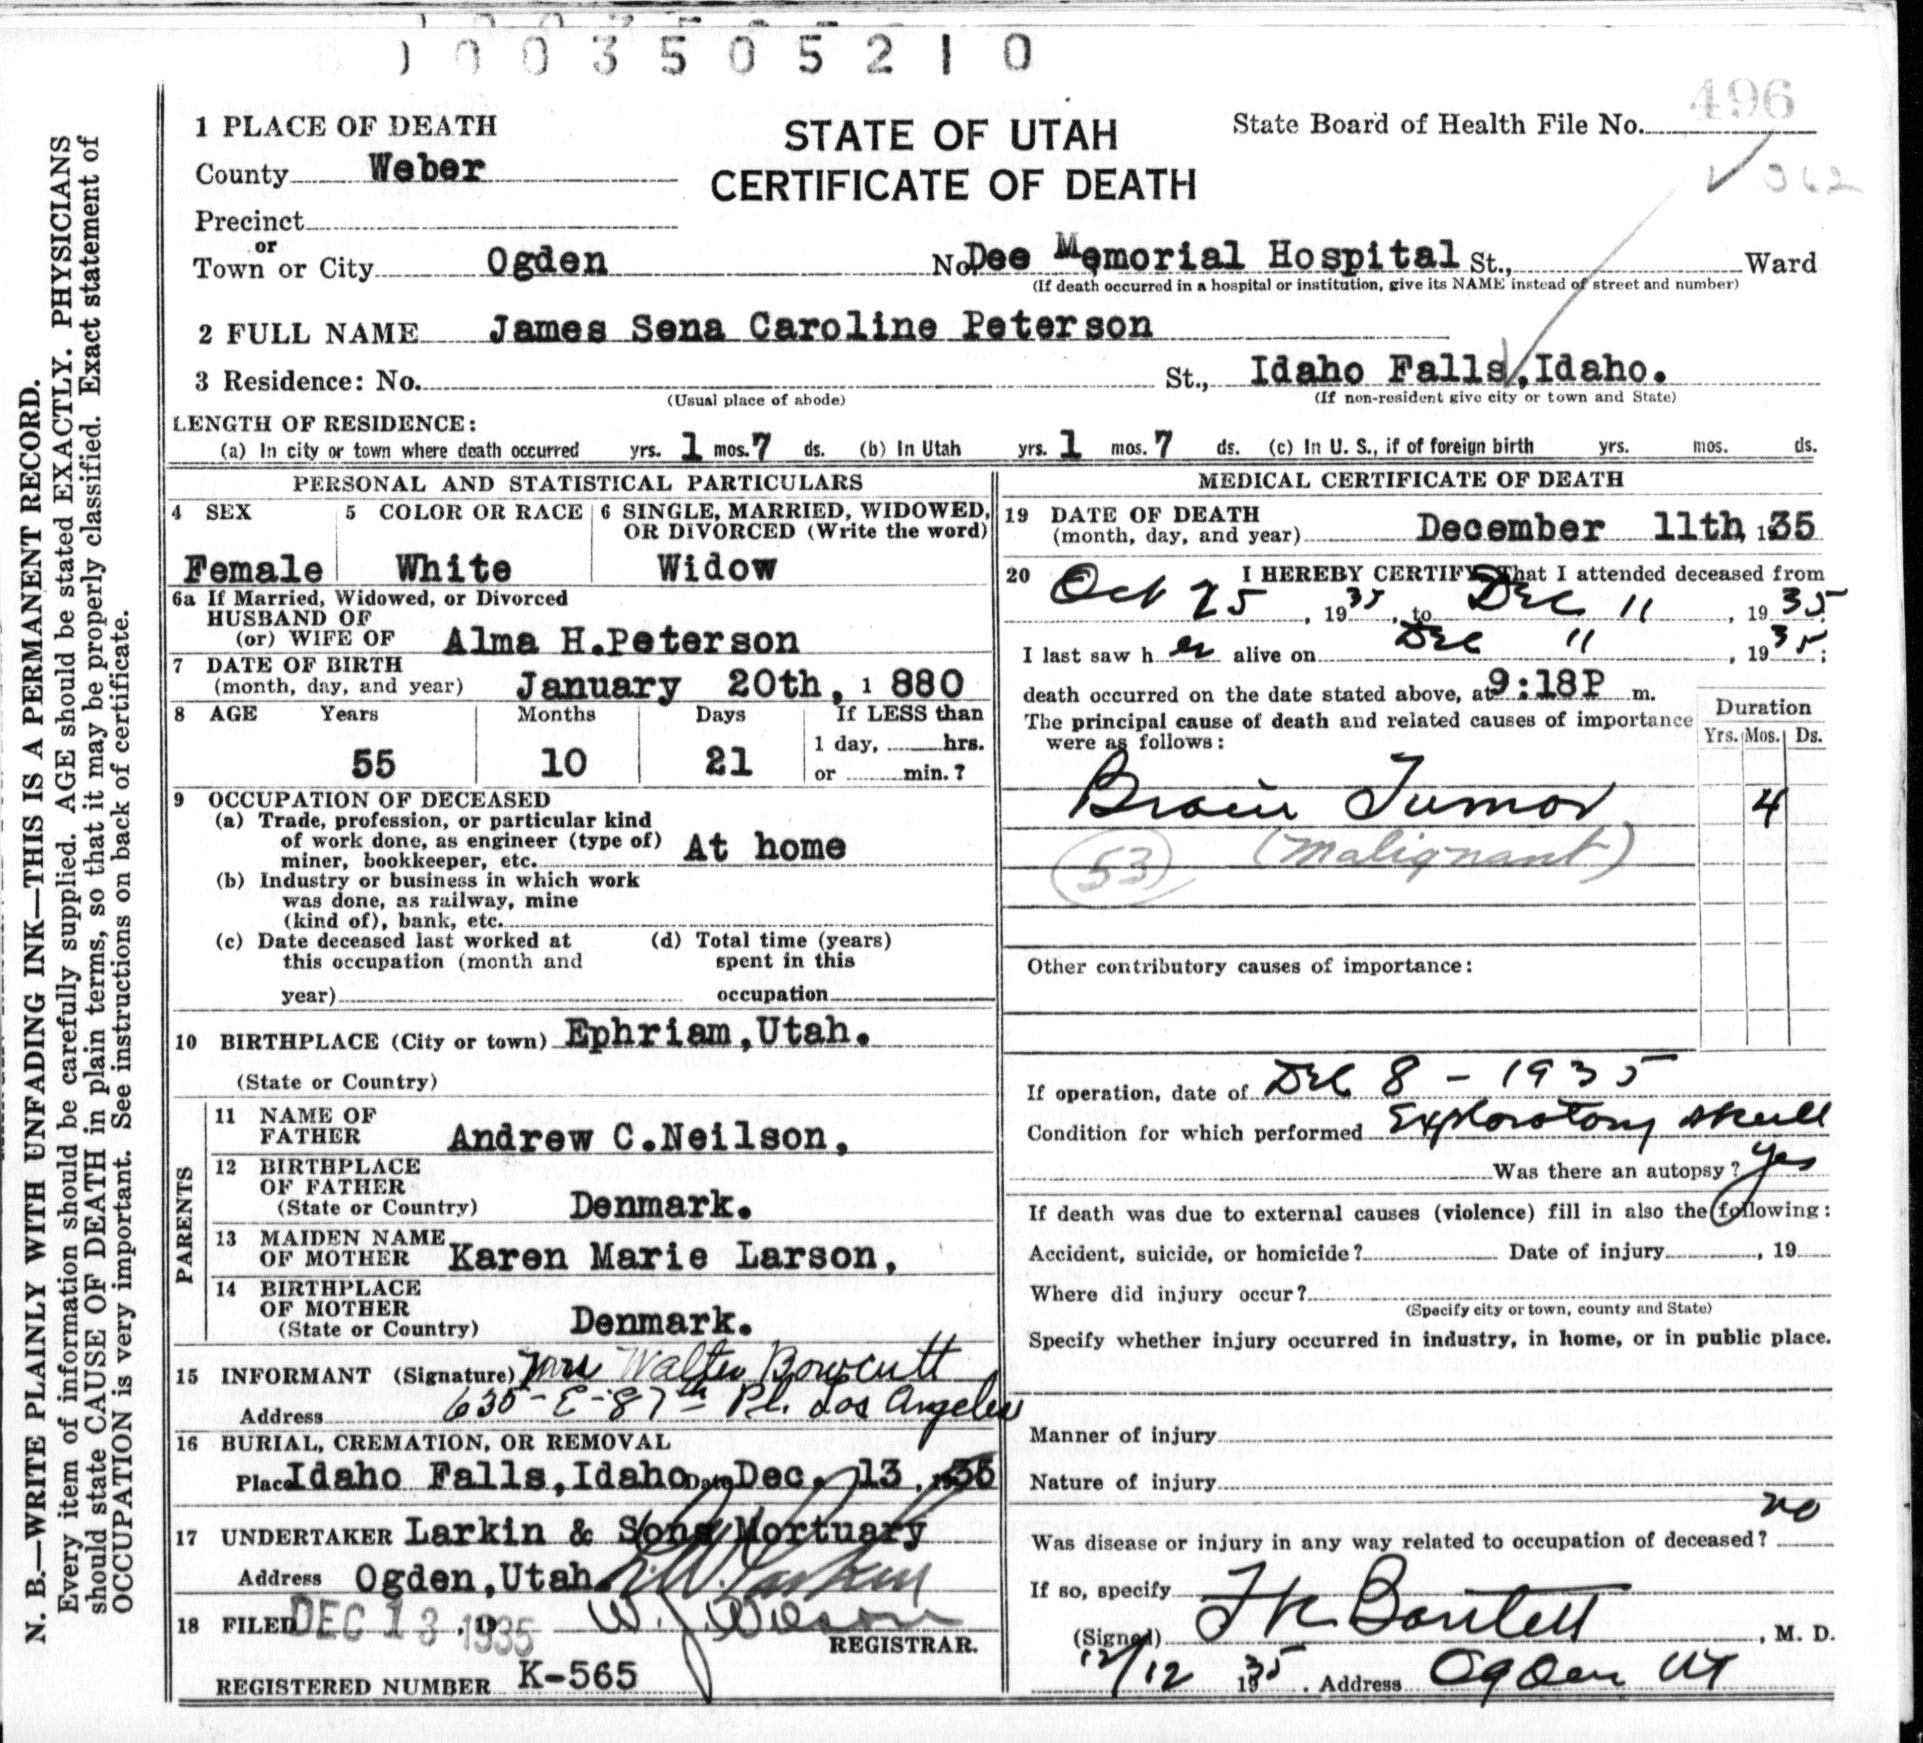 1003505210
1 PLACE OF DEATH
STATE OF UTAH
CERTIFICATE OF DEATH
State Board of Health File No. 496
362
County Weber
Precinct
or
Town or City Ogden No. Dee Memorial Hospital St., Ward
(If death occurred in a hospital or institution, give its NAME instead of street and number)
2 FULL NAME James Sena Caroline Peterson
3 Residence: No. St., Idaho Falls, Idaho.
(Usual place of abode) (If non-resident give city or town and State)
LENGTH OF RESIDENCE:
(a) In city or town where death occurred yrs. 1 mos. 7 ds. (b) In Utah yrs. 1 mos. 7 ds. (c) In U. S., if of foreign birth yrs. mos. ds.
PERSONAL AND STATISTICAL PARTICULARS
4 SEX 5 COLOR OR RACE 6 SINGLE, MARRIED, WIDOWED,
OR DIVORCED (Write the word)
Female White Widow
6a If Married, Widowed, or Divorced
HUSBAND OF
(or) WIFE OF Alma H.Peterson
7 DATE OF BIRTH
(month, day, and year) January 20th, 1 880
8 AGE Years Months Days If LESS than
1 day, hrs.
55 10 21 or min.?
9 OCCUPATION OF DECEASED
(a) Trade, profession, or particular kind
of work done, as engineer (type of)
miner, bookkeeper, etc. At home
(b) Industry or business in which work
was done, as railway, mine
(kind of), bank, etc.
(c) Date deceased last worked at (d) Total time (years)
this occupation (month and spent in this
year) occupation
10 BIRTHPLACE (City or town) Ephriam,Utah.
(State or Country)
PARENTS
11 NAME OF
FATHER Andrew C.Neilson,
12 BIRTHPLACE
OF FATHER
(State or Country) Denmark.
13 MAIDEN NAME
OF MOTHER Karen Marie Larson,
14 BIRTHPLACE
OF MOTHER
(State or Country) Denmark.
15 INFORMANT (Signature) Mrs Walter Bowcutt
Address 635-E-87th Pl. Los Angeles
16 BURIAL, CREMATION, OR REMOVAL
Place Idaho Falls,Idaho Date Dec. 13, 1935
17 UNDERTAKER Larkin & Sons Mortuary
Address Ogden,Utah.
18 FILED DEC 13 1935 W. J. Wilson
REGISTRAR.
REGISTERED NUMBER K-565
MEDICAL CERTIFICATE OF DEATH
19 DATE OF DEATH
(month, day, and year) December 11th, 1935
20 I HEREBY CERTIFY, That I attended deceased from
Oct 25, 1935, to Dec 11, 1935
I last saw h er alive on Dec 11, 1935;
death occurred on the date stated above, at 9:18P m.
The principal cause of death and related causes of importance
were as follows:
Duration
Yrs. Mos. Ds.
Brain Tumor 4
(53) (Malignant)
Other contributory causes of importance:
If operation, date of Dec 8 - 1935
Condition for which performed Exploratory skull
Was there an autopsy? yes
If death was due to external causes (violence) fill in also the following:
Accident, suicide, or homicide? Date of injury , 19
Where did injury occur?
(Specify city or town, county and State)
Specify whether injury occurred in industry, in home, or in public place.
Manner of injury
Nature of injury
Was disease or injury in any way related to occupation of deceased? no
If so, specify
(Signed) F K Bartlett, M. D.
12/12 1935. Address Ogden Ut
N. B.—WRITE PLAINLY WITH UNFADING INK—THIS IS A PERMANENT RECORD.
Every item of information should be carefully supplied. AGE should be stated EXACTLY. PHYSICIANS
should state CAUSE OF DEATH in plain terms, so that it may be properly classified. Exact statement of
OCCUPATION is very important. See instructions on back of certificate.